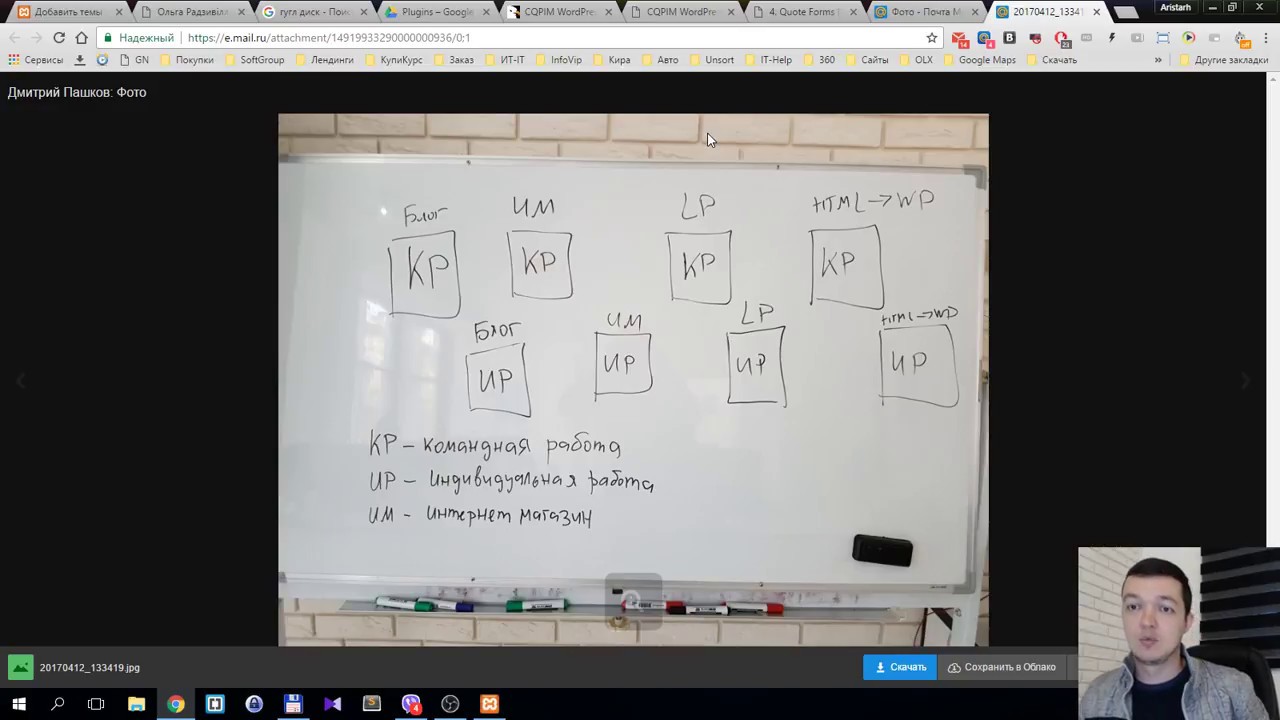 Добавить темы
Ольга Радзивіл
гугл диск - Поис
Plugins – Google
CQPIM WordPres
CQPIM WordPre
4: Quote Forms
Фото - Почта M
20170412_13341
Aristarh
Надежный
https://e.mail.ru/attachment/14919933290000000936/0;1
14
4
23
Сервисы
GN
Покупки
SoftGroup
Лендинги
КупиКурс
Заказ
ИТ-IT
InfoVip
Кира
Авто
Unsort
IT-Help
360
Сайты
OLX
Google Maps
Скачать
»
Другие закладки
Дмитрий Пашков: Фото
Блог
ИМ
LP
HTML→WP
КР
КР
КР
КР
Блог
ИМ
LP
HTML→WP
ИР
ИР
ИР
ИР
КР – командная работа
ИР – индивидуальная работа
ИМ – интернет магазин
20170412_133419.jpg
Скачать
Сохранить в Облако
4